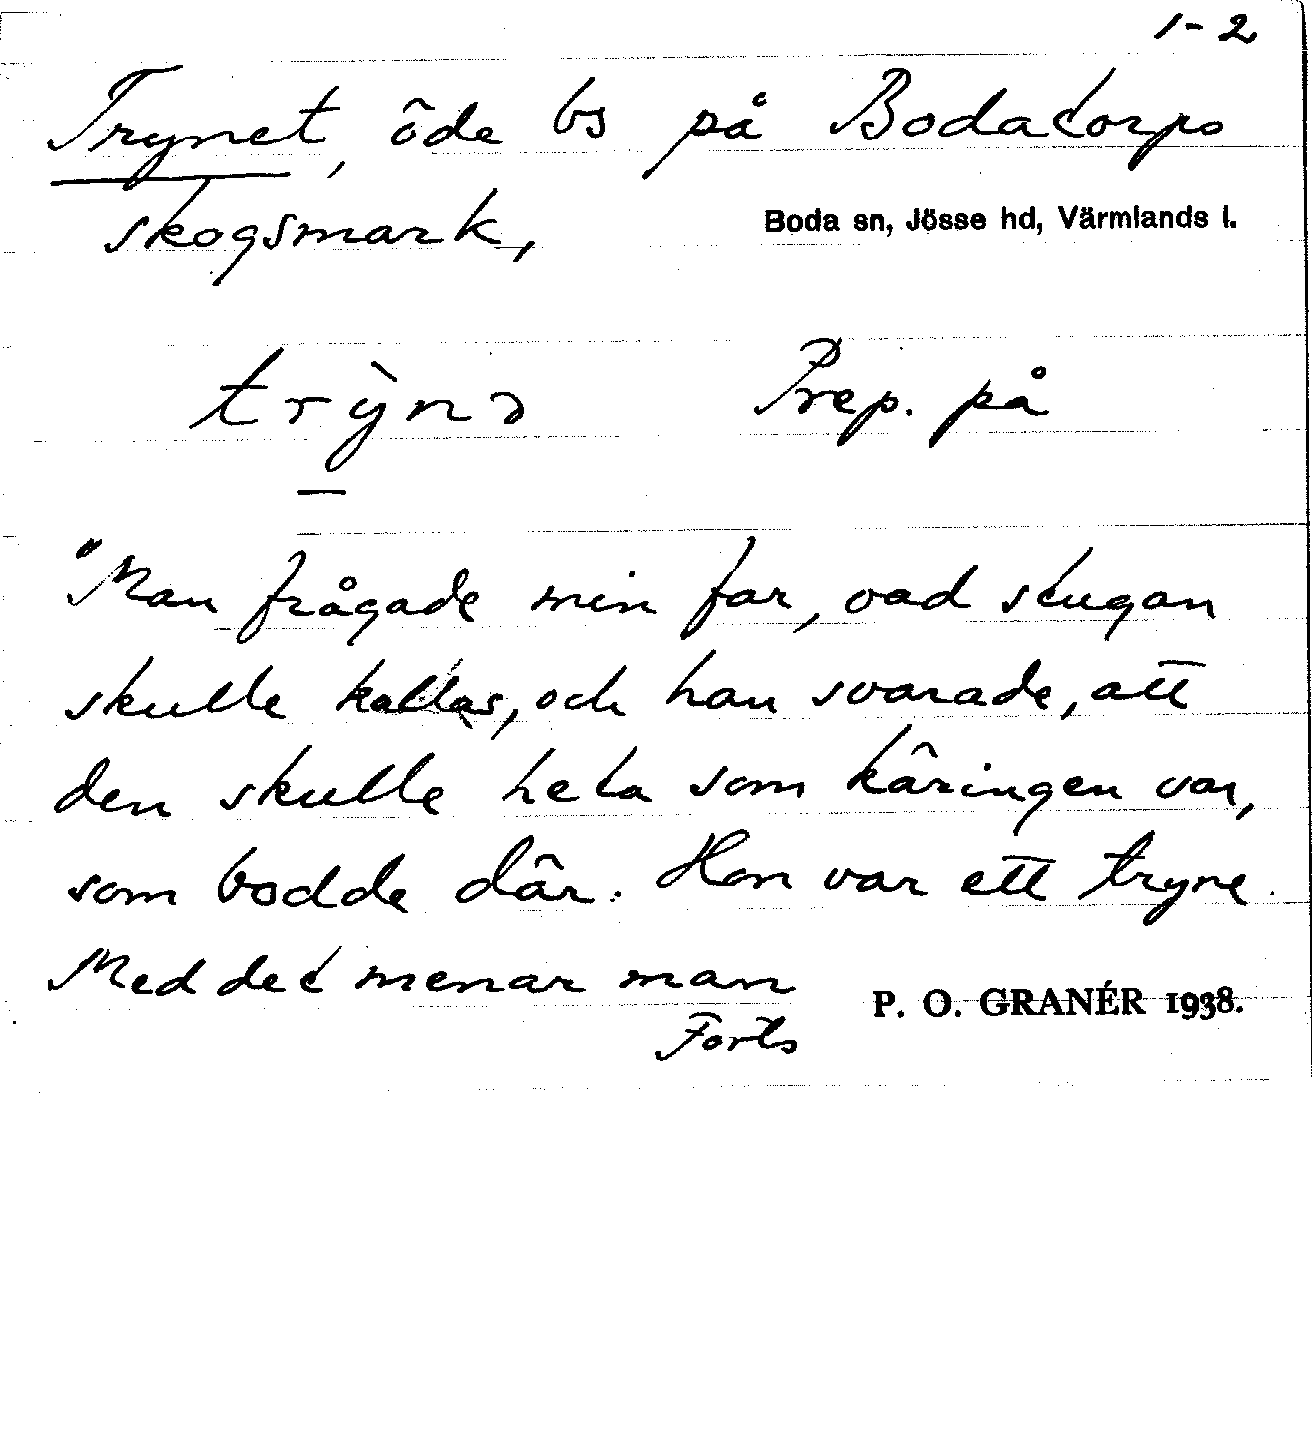 1-2
Trynet, öde bs på Bodatorps
skogsmark,
Boda sn, Jösse hd, Värmlands l.
trỳnə Prep. på
"Man frågade min far, vad stugan
skulle kallas, och han svarade, att
den skulle heta som käringen var,
som bodde där. Hon var ett tryne.
Med det menar man
P. O. GRANÉR 1938.
Forts